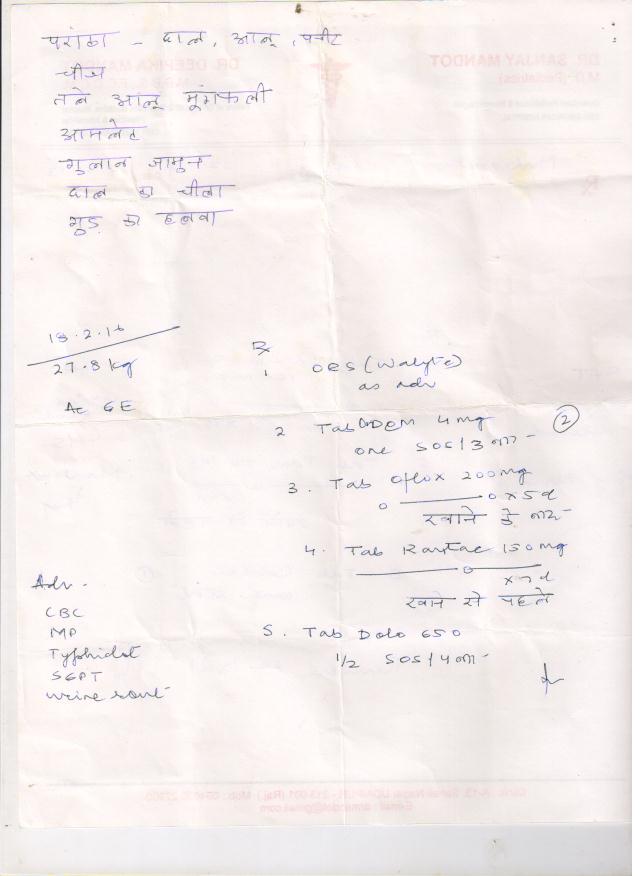 परांठा - दाल, आलू, पनीर
चीज
तले आलू मूंगफली
आमलेट
गुलाब जामुन
दाल का चीला
गुड़ का हलवा
18.2.16
27.8 kg
Ac GE
Rx
1 ORS (Walyte)
as adv
2 Tab Ondem 4mg (2)
one SOS/3
3. Tab Oflox 200mg
o — o x 5d
खाने के बाद
4. Tab Rantac 150mg
— o —
खाने से पहले
5. Tab Dolo 650
1/2 SOS/4
Adv -
CBC
MP
Typhidot
SGPT
urine rout
DR. SANJAY MANDOT
M.D. (Pediatrics)
DR. DEEPIKA MANDOT